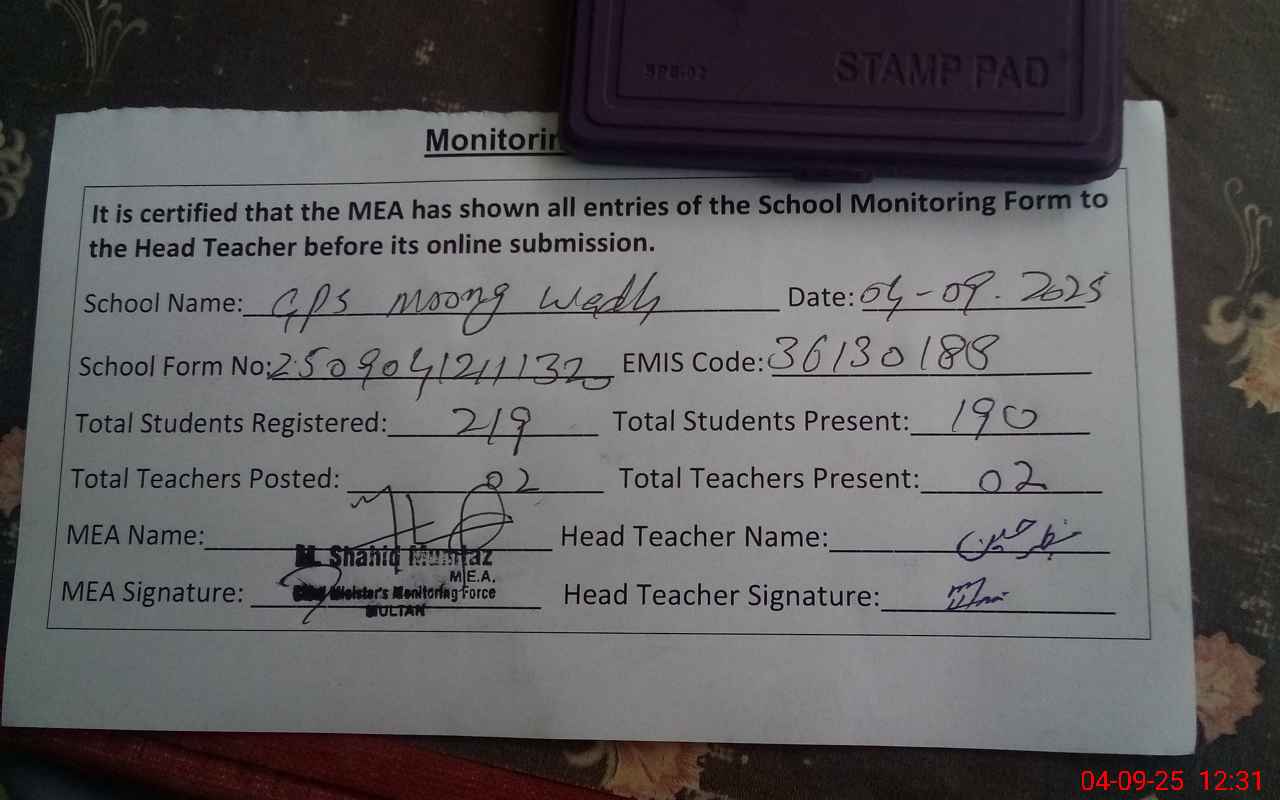 STAMP PAD
Monitorin
It is certified that the MEA has shown all entries of the School Monitoring Form to
the Head Teacher before its online submission.
School Name: GPS Moong Wadh Date: 04-09.2025
School Form No: EMIS Code: 36130188
Total Students Registered: 219 Total Students Present: 190
Total Teachers Posted: 02 Total Teachers Present: 02
MEA Name: Head Teacher Name:
M. Shahid Mumtaz
M.E.A.
MEA Signature: Head Teacher Signature:
Monitoring Force
MULTAN
04-09-25 12:31